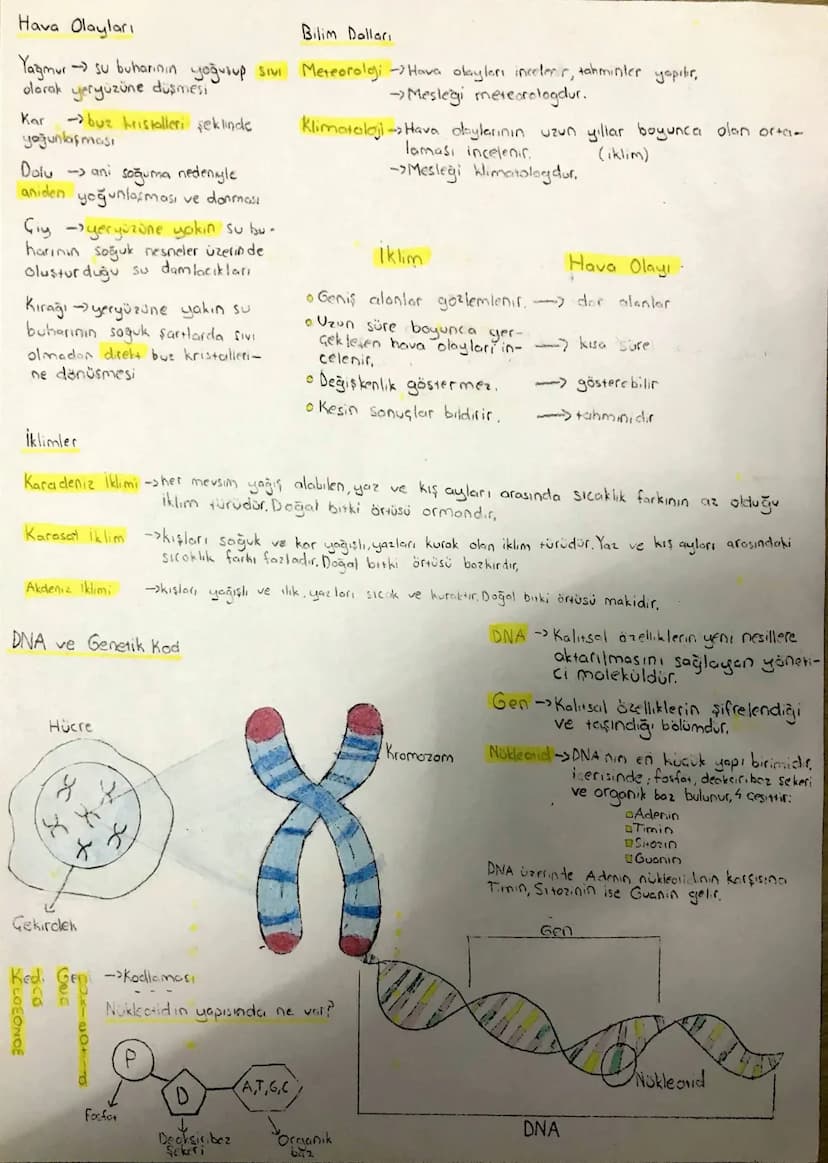 Hava Olayları
Yağmur → su buharının yoğuşup sıvı
olarak yeryüzüne düşmesi
Kar → buz kristalleri şeklinde
yoğunlaşması
Dolu → ani soğuma nedeniyle
aniden yoğunlaşması ve donması
Çiy → yeryüzüne yakın su bu-
harının soğuk nesneler üzerinde
oluşturduğu su damlacıkları
Kırağı → yeryüzüne yakın su
buharının soğuk şartlarda sıvı
olmadan direkt buz kristalleri-
ne dönüşmesi
Bilim Dalları
Meteoroloji → Hava olayları incelenir, tahminler yapılır.
→ Mesleği meteorologdur.
Klimatoloji → Hava olaylarının uzun yıllar boyunca olan orta-
laması incelenir. (iklim)
→ Mesleği klimatologdur.
İklim Hava Olayı
Geniş alanlar gözlemlenir. → dar alanlar
Uzun süre boyunca ger-
çekleşen hava olayları in- → kısa süre
celenir.
Değişkenlik göstermez. → gösterebilir
Kesin sonuçlar bildirir. → tahminidir
İklimler
Karadeniz İklimi → her mevsim yağış alabilen, yaz ve kış ayları arasında sıcaklık farkının az olduğu
iklim türüdür. Doğal bitki örtüsü ormandır.
Karasal İklim → kışları soğuk ve kar yağışlı, yazları kurak olan iklim türüdür. Yaz ve kış ayları arasındaki
sıcaklık farkı fazladır. Doğal bitki örtüsü bozkırdır.
Akdeniz İklimi → kışları yağışlı ve ılık, yazları sıcak ve kuraktır. Doğal bitki örtüsü makidir.
DNA ve Genetik Kod
DNA → Kalıtsal özelliklerin yeni nesillere
aktarılmasını sağlayan yöneti-
ci moleküldür.
Gen → Kalıtsal özelliklerin şifrelendiği
ve taşındığı bölümdür.
Nükleotid → DNA'nın en küçük yapı birimidir.
İçerisinde; fosfat, deoksiriboz şekeri
ve organik baz bulunur, 4 çeşittir:
Adenin
Timin
Sitozin
Guanin
DNA üzerinde Adenin nükleotidinin karşısına
Timin, Sitozinin ise Guanin gelir.
Hücre
Kromozom
Çekirdek
Kedi Gen → Kodlaması
Kromozom
DNA
Gen
Nükleotid
Nükleotidin yapısında ne var?
P
D
A,T,G,C
Fosfat
Deoksiriboz
şekeri
Organik
baz
Gen
Nükleotid
DNA